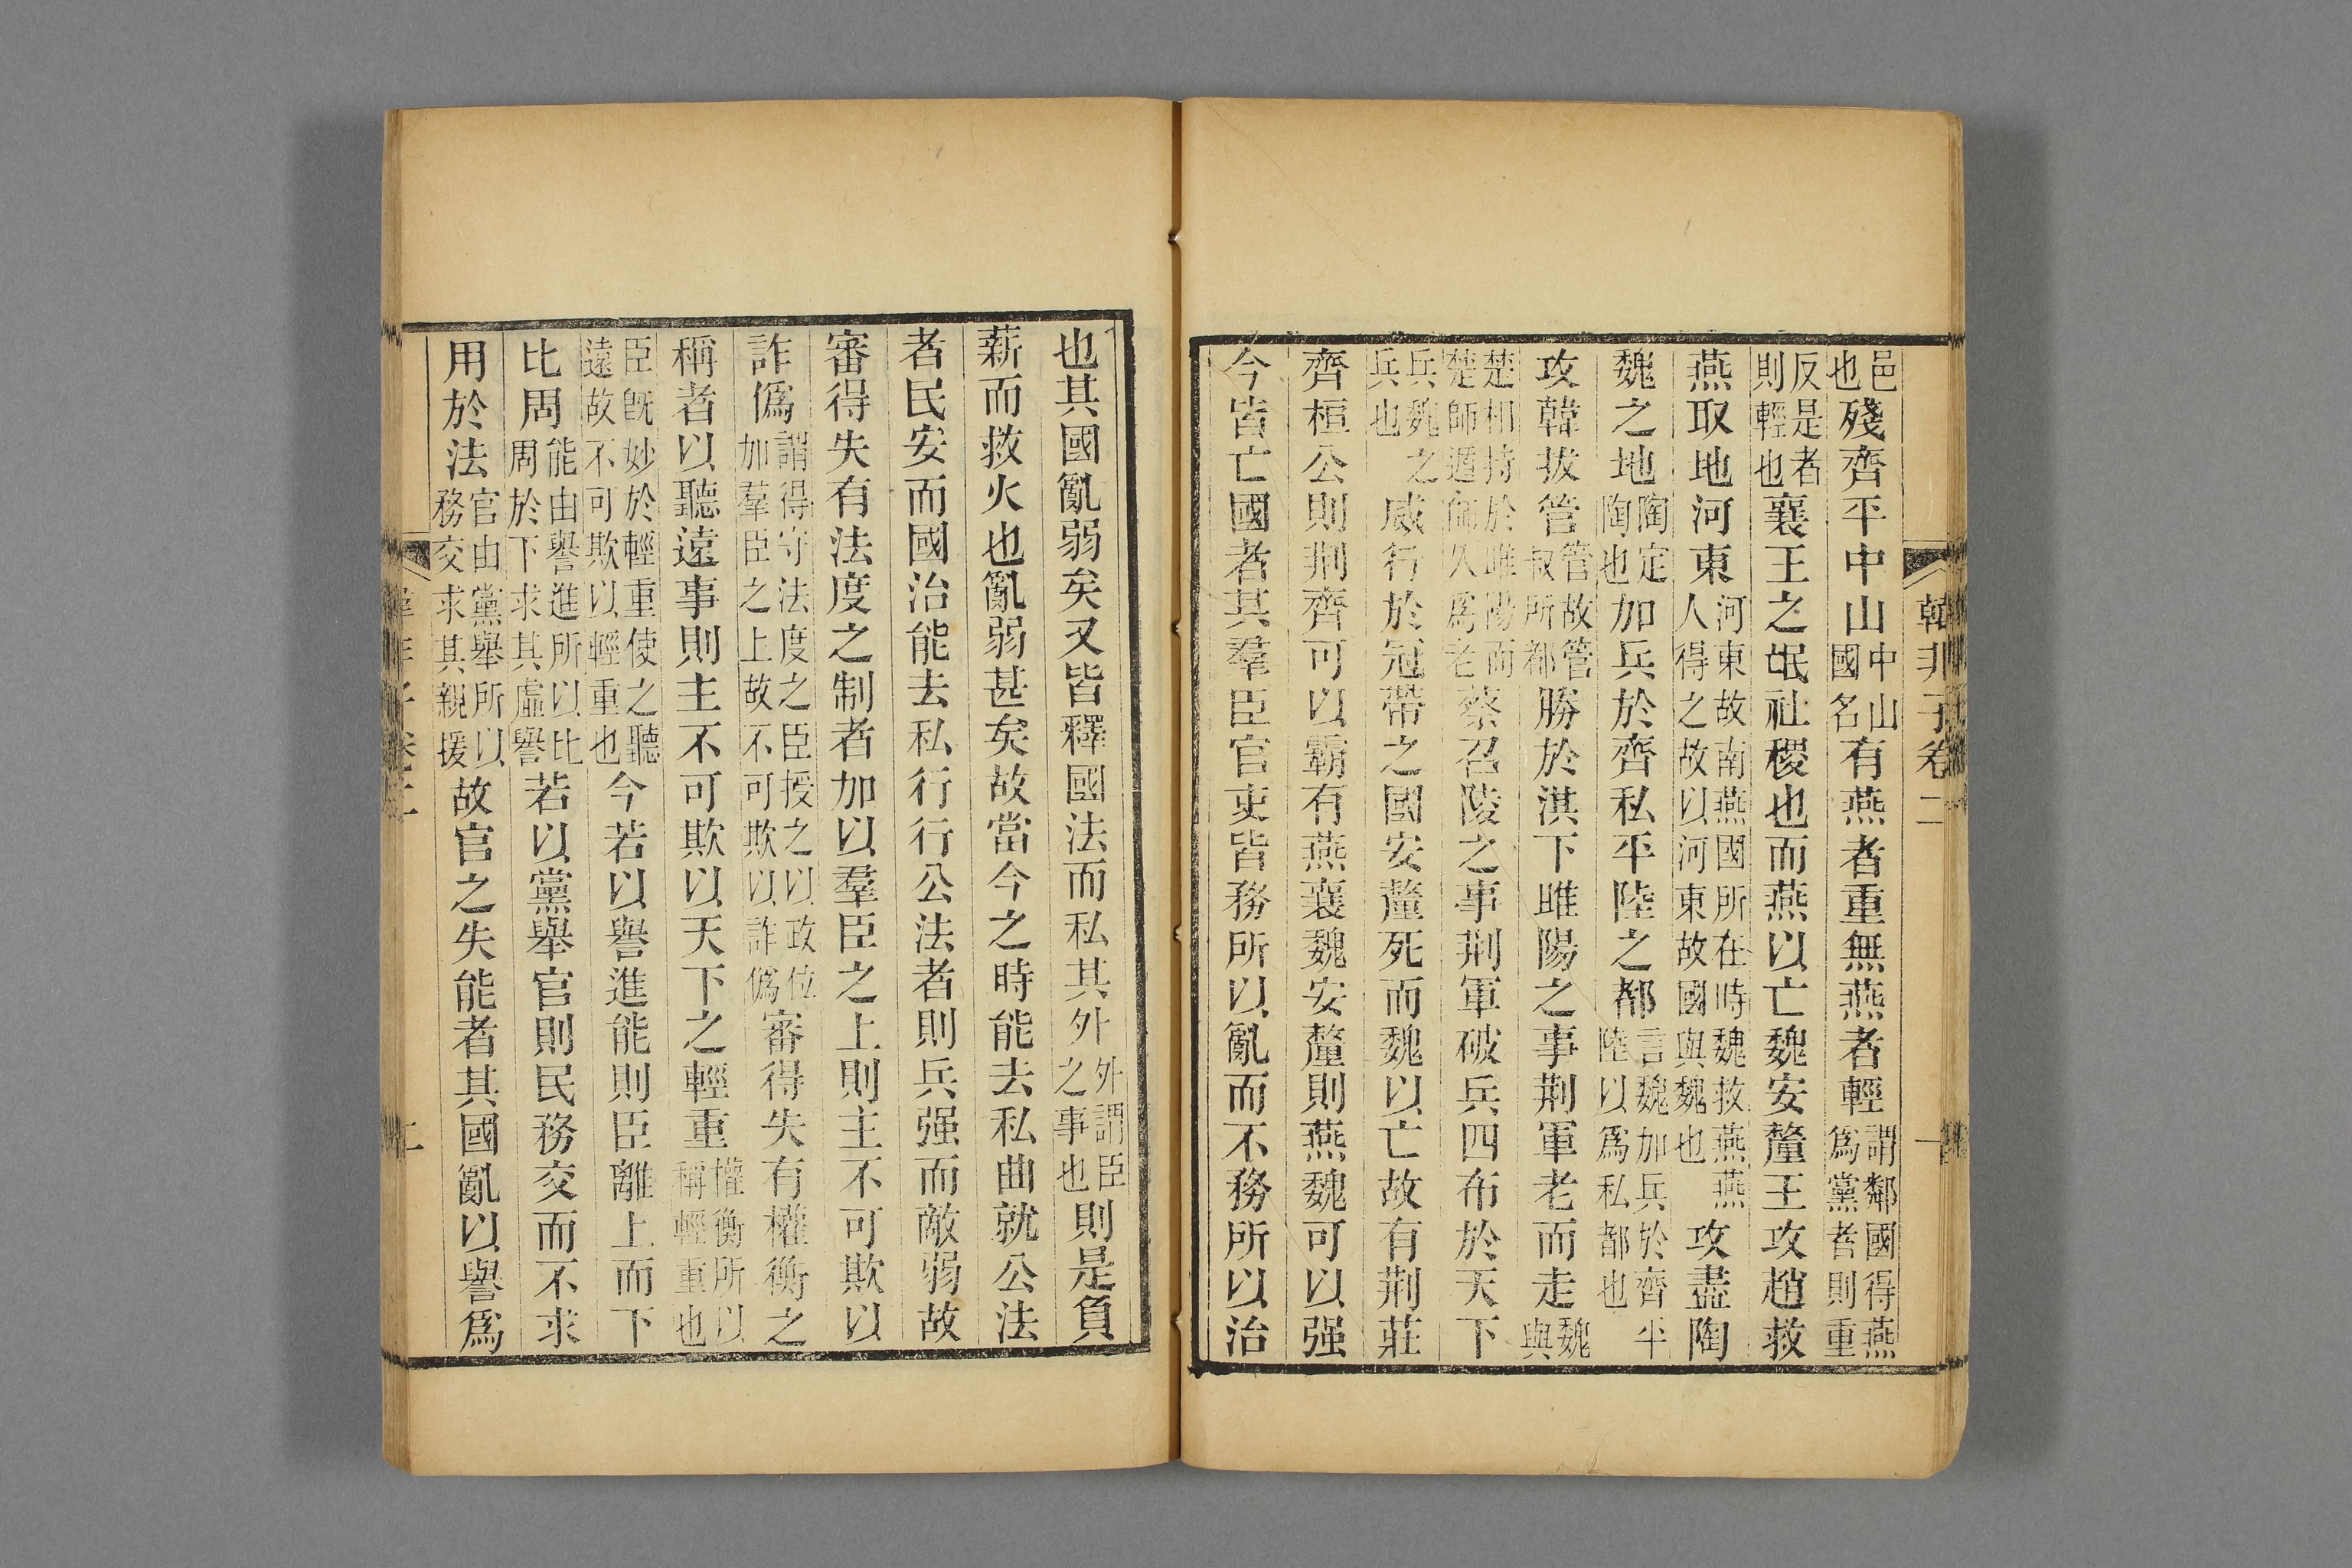 韓非子卷二
一
邑也殘齊平中山中山國名有燕者重無燕者輕謂鄰國得燕爲黨者則重
反是者則輕也襄王之氓社稷也而燕以亡魏安釐王攻趙救
燕取地河東河東故南燕國所在時魏救燕燕人得之故以河東故國與魏也攻盡陶
魏之地陶定陶也加兵於齊私平陸之都言魏加兵於齊平陸以爲私都也
攻韓拔管管故管叔所都勝於淇下睢陽之事荆軍老而走魏與
楚相持於睢陽而楚師遁師久爲老蔡召陵之事荆軍破兵四布於天下
兵魏之兵也威行於冠帶之國安釐死而魏以亡故有荆莊
齊桓公則荆齊可以霸有燕襄魏安釐則燕魏可以强
今皆亡國者其羣臣官吏皆務所以亂而不務所以治
也其國亂弱矣又皆釋國法而私其外外謂臣之事也則是負
薪而救火也亂弱甚矣故當今之時能去私曲就公法
者民安而國治能去私行行公法者則兵强而敵弱故
審得失有法度之制者加以羣臣之上則主不可欺以
詐僞謂得守法度之臣授之以政位加羣臣之上故不可欺以詐僞審得失有權衡之
稱者以聽遠事則主不可欺以天下之輕重權衡所以稱輕重也
臣旣妙於輕重使之聽遠故不可欺以輕重也今若以譽進能則臣離上而下
比周能由譽進所以比周於下求其虛譽若以黨舉官則民務交而不求
用於法官由黨舉所以務交求其親援故官之失能者其國亂以譽爲